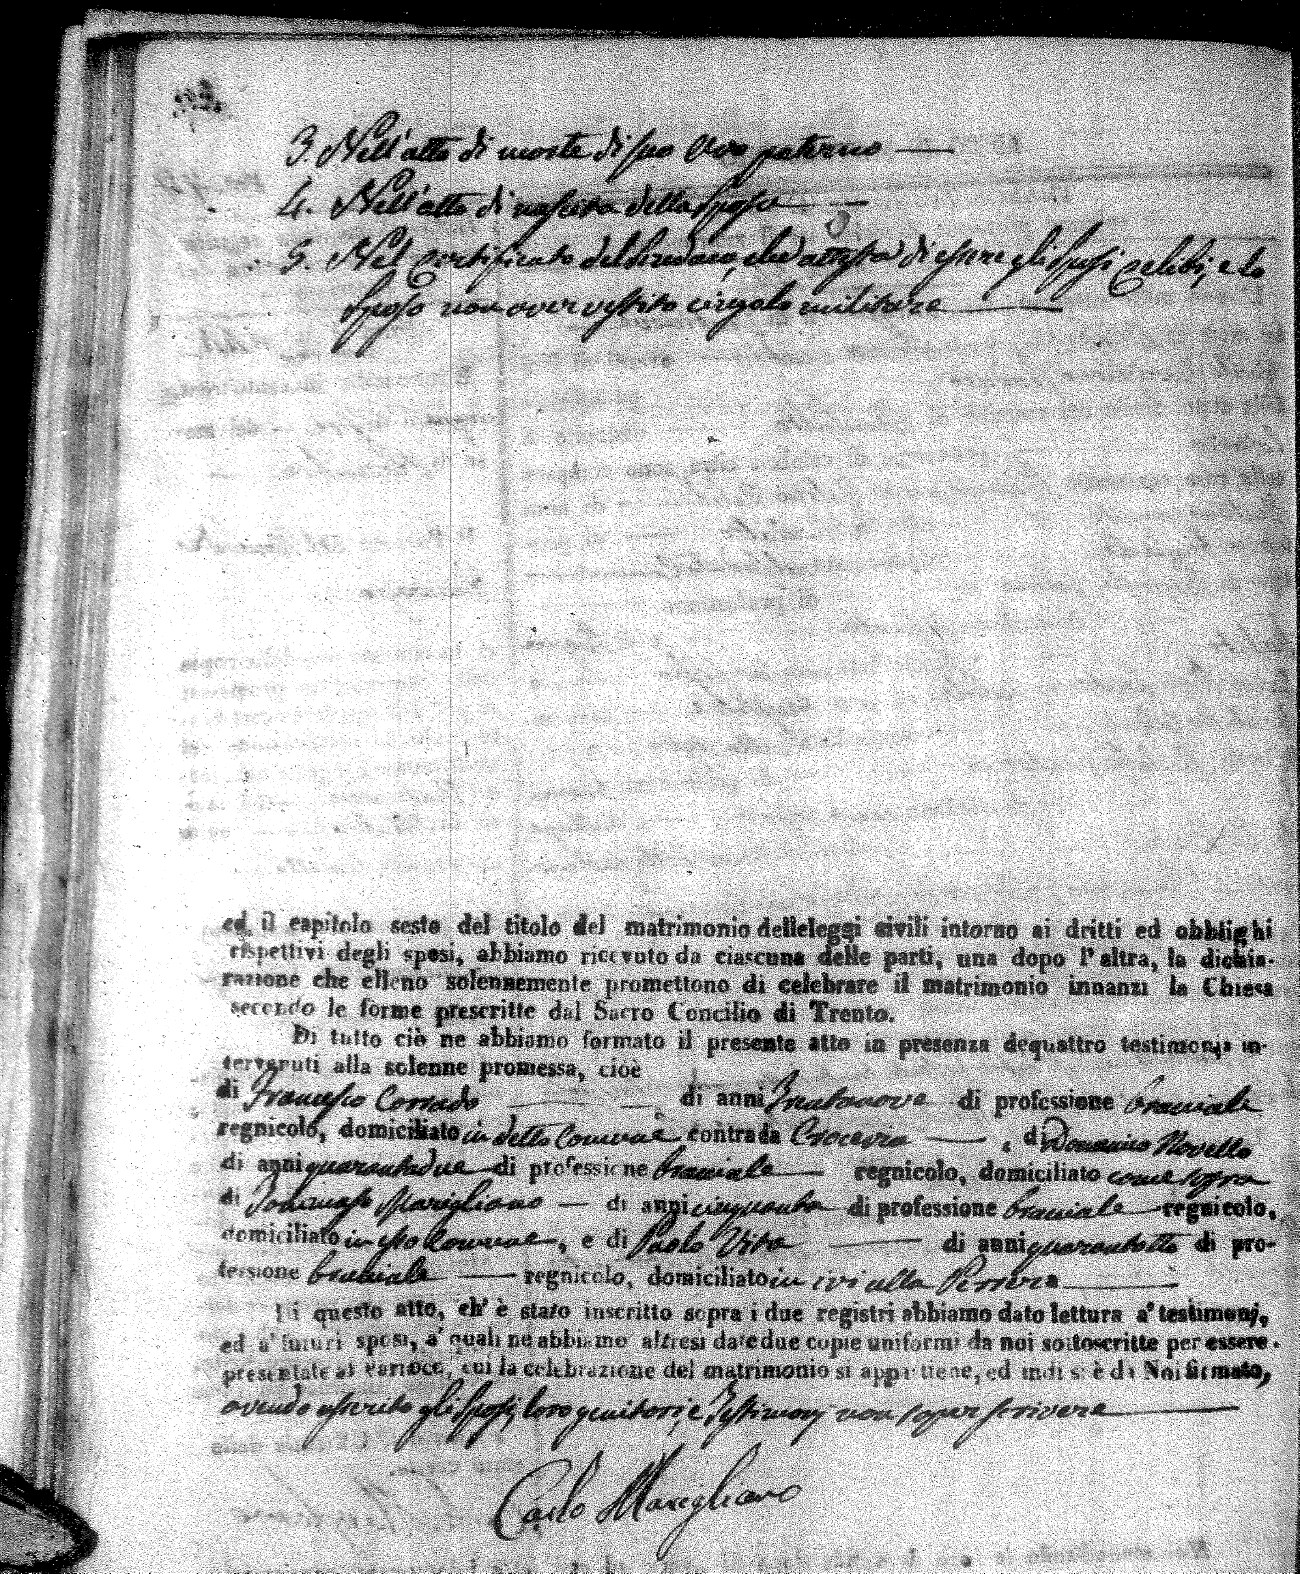 3. Nell'atto di morte di suo Avo paterno
4. Nell'atto di nascita della Sposa
5. Nel Certificato del Sindaco, che attesta di essere gli Sposi celibi, e lo
Sposo non aver vestito cingolo militare
ed il capitolo sesto del titolo del matrimonio delleleggi civili intorno ai dritti ed obblighi
rispettivi degli sposi, abbiamo ricevuto da ciascuna delle parti, una dopo l'altra, la dichia-
razione che elleno solennemente promettono di celebrare il matrimonio innanzi la Chiesa
secondo le forme prescritte dal Sacro Concilio di Trento.
Di tutto ciò ne abbiamo formato il presente atto in presenza dequattro testimonj in-
tervenuti alla solenne promessa, cioè
di Francesco Corrado di anni Trentanove di professione bracciale
regnicolo, domiciliato in detto Comune contrada Crocevia , di Domenico Novello
di anni quarantadue di professione bracciale regnicolo, domiciliato come sopra
di Tommaso Marigliano di anni cinquanta di professione bracciale regnicolo,
domiciliato in sto Comune, e di Paolo Vita di anni quarantotto di pro-
fessione bracciale regnicolo, domiciliato in ivi alla
Di questo atto, ch'è stato inscritto sopra i due registri abbiamo dato lettura a' testimonj,
ed a' futuri sposi, a' quali ne abbiamo altresì date due copie uniformi da noi sottoscritte per essere
presentate al Parroco, cui la celebrazione del matrimonio si appartiene, ed indi s'è da Noi firmato,
avendo asserito gli Sposi, loro genitori, e Testimonj non saper scrivere
Carlo Marigliano